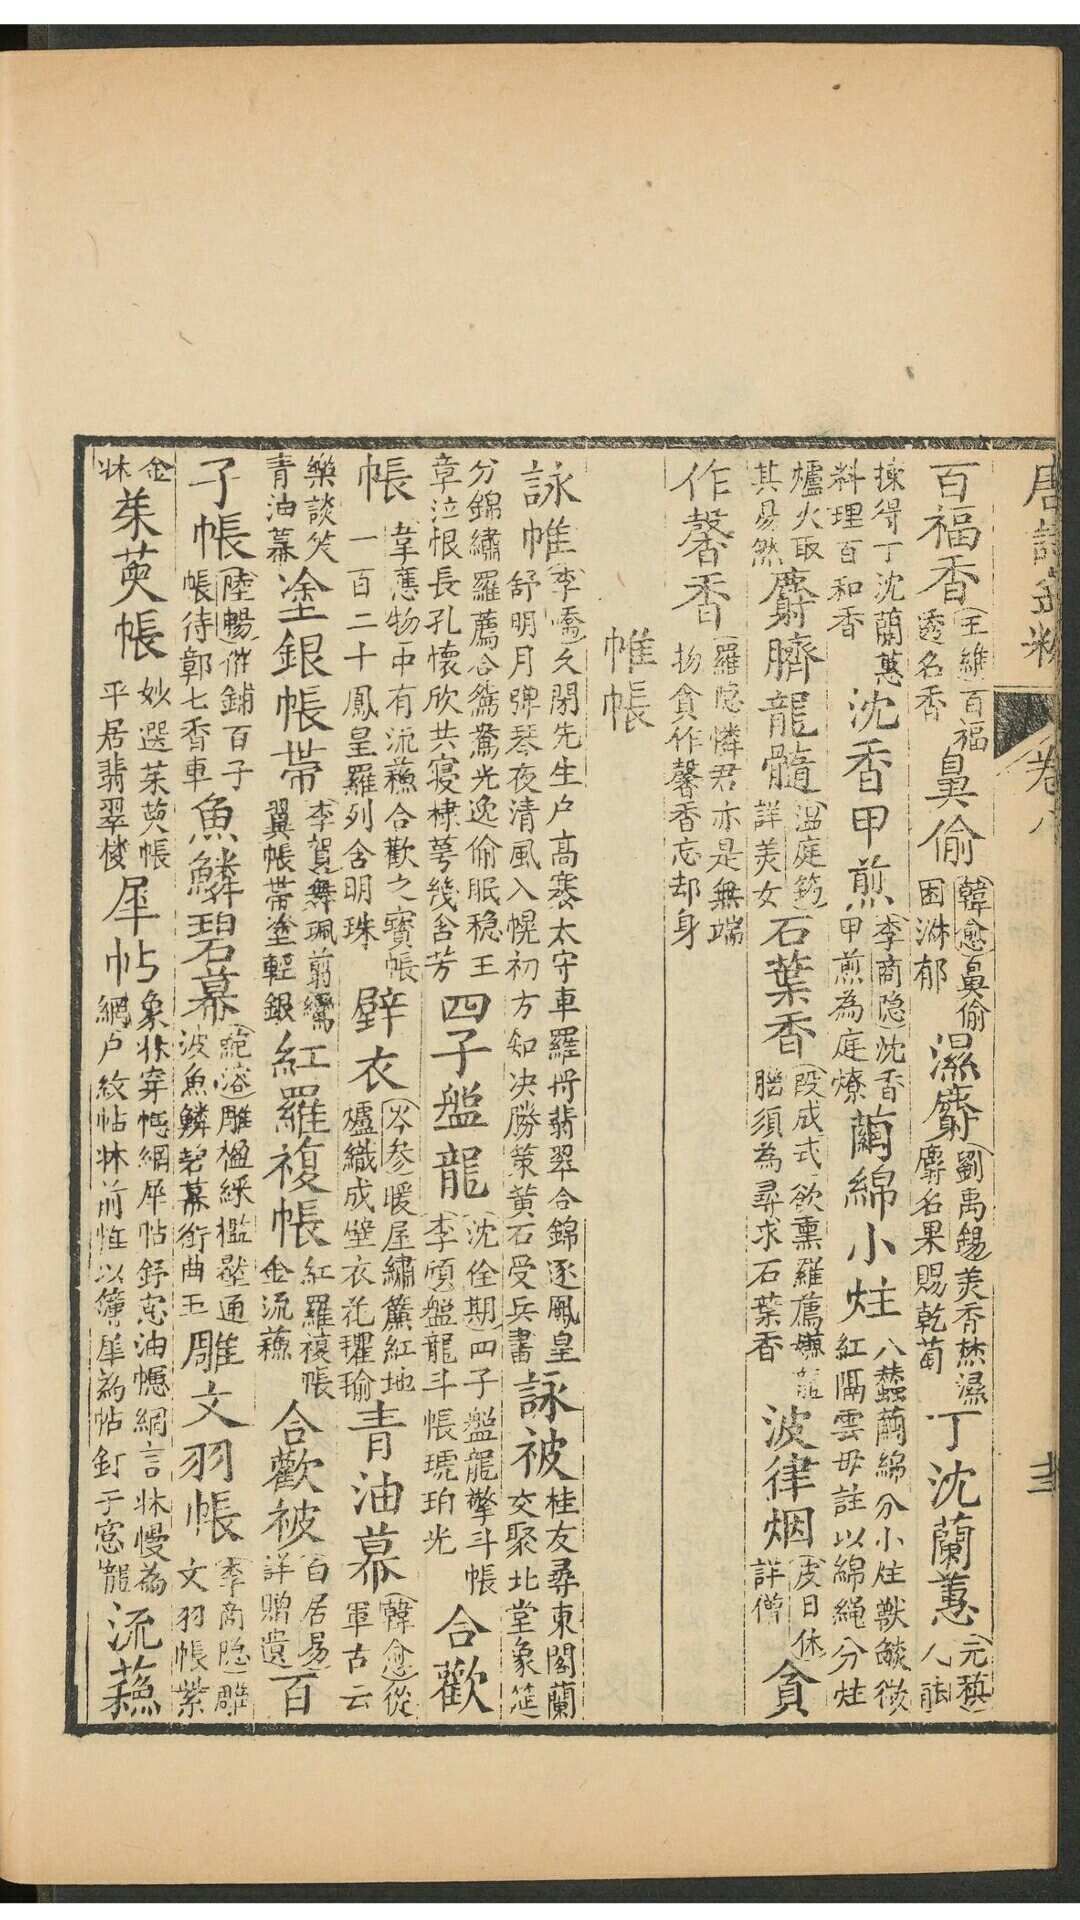 唐詩金粉 卷八
百福香 王維百福透名香 鼻偷 韓愈鼻偷困淋郁 濕麝 劉禹錫美香焚濕麝名果賜乾萄 丁沈蘭蕙 元稹人能
揀得丁沈蘭蕙料理百和香 沈香甲煎 李商隐沈香甲煎為庭燎 蘭綿小炷 八蠶繭綿分小炷獸燄微紅隔雲母註以綿繩分炷
爐火取其易然 麝臍龍髓 温庭筠詳美女 石葉香 段成式欲熏羅薦嫌龍腦須為尋求石葉香 波律烟 皮日休詳僧 貪
作馨香 羅隐憐君亦是無端物貪作馨香忘却身
帷帳
詠帷 李嶠久閉先生户高褰太守車羅將翡翠合錦逐鳳皇舒明月弾琴夜清風入幌初方知决勝策黄石受兵書 詠被 桂友尋東閣蘭交聚北堂象筵
分錦繡羅薦合鴛鴦光逸偷眠穏王章泣恨長孔懷欣共寝棣萼幾含芳 四子盤龍 沈佺期四子盤龍擎斗帳李頎盤龍斗帳琥珀光 合歡
帳 韋應物中有流蘓合歡之寳帳一百二十鳳皇羅列含明珠 壁衣 岑参暖屋繡簾紅地爐織成壁衣花氍毹 青油幕 韓愈從軍古云
樂談笑青油幕 塗銀帳帶 李賀舞珮剪鸞翼帳帶塗輕銀 紅羅複帳 紅羅複帳金流蘓 合歡被 白居易詳贈遺 百
子帳 陸暢催鋪百子帳待鄣七香車 魚鱗碧幕 鮑溶雕楹綵檻壓通波魚鱗碧幕銜曲玉 雕文羽帳 李商隐雕文羽帳紫
金牀 茱萸帳 妙選茱萸帳平居翡翠楼 犀帖 象牀穿幰網犀帖釘窓油幰網言牀幔為網户紋帖牀前帷以簿犀為帖釘于窓櫳 流蘓